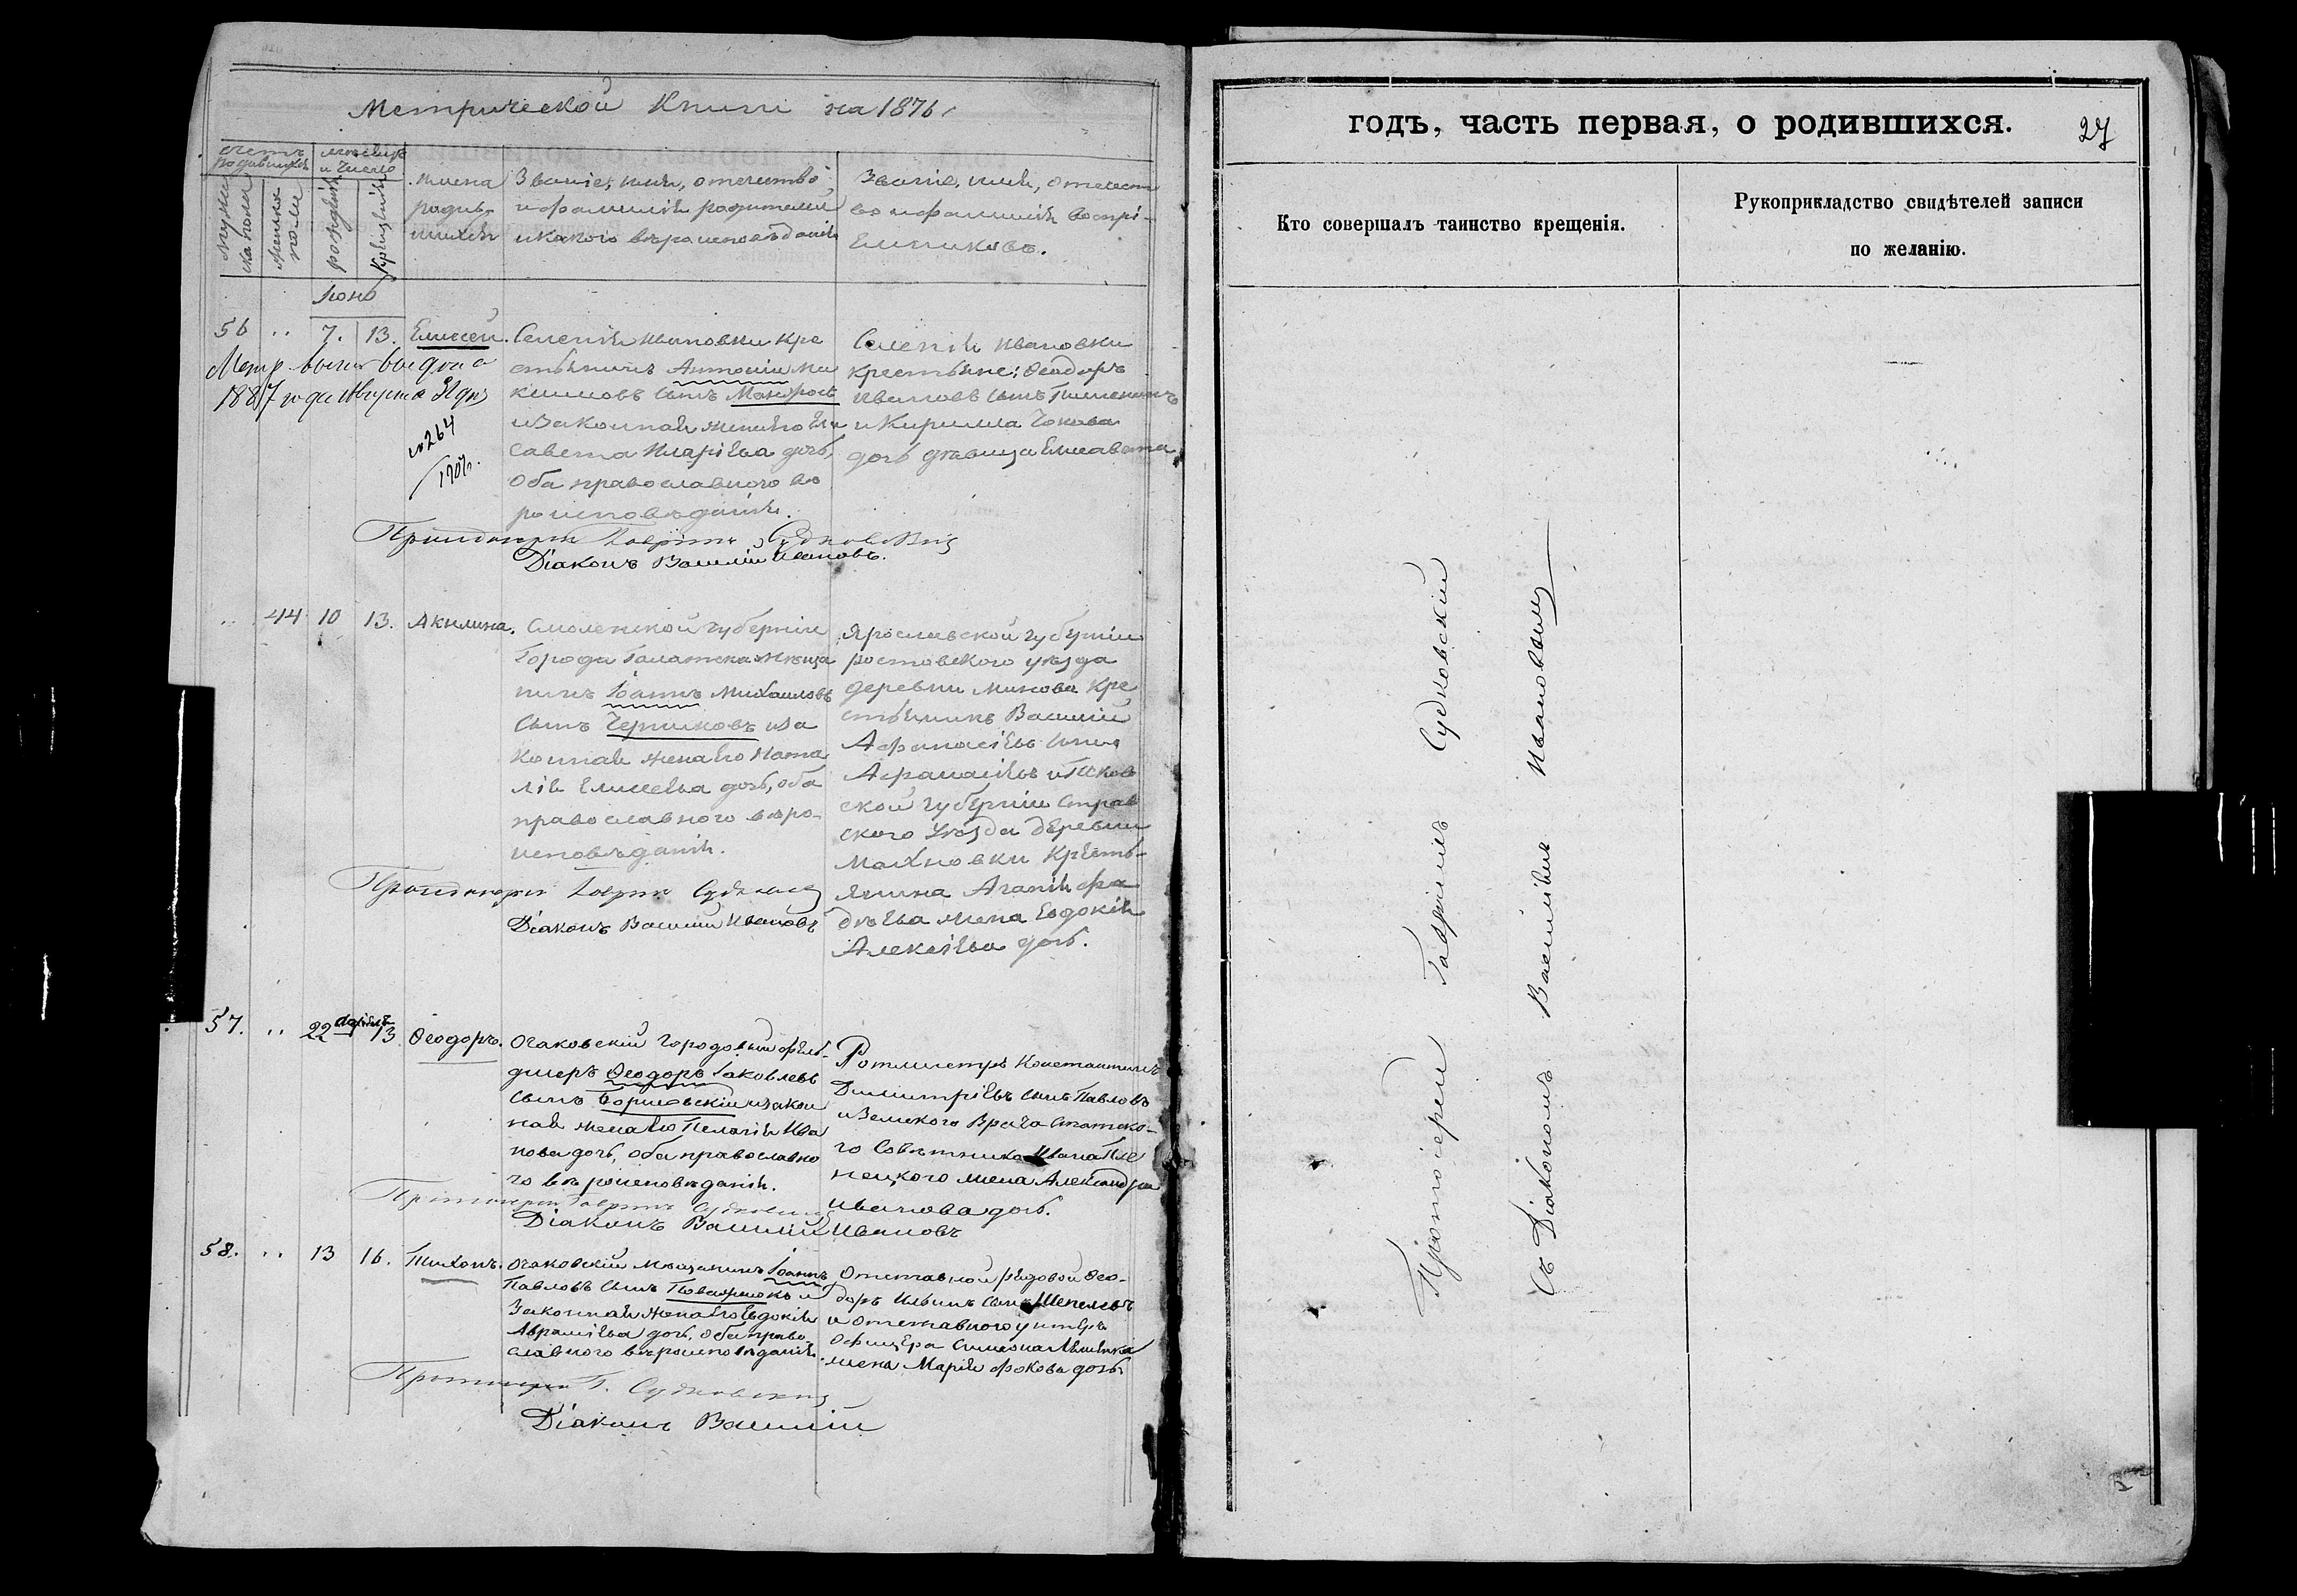 Метрической Книги на 1876
годъ, часть первая, о родившихся.
27
Счетъ родившихся
мѣсяцъ и число
мужеска пола
женска пола
рожденія
крещенія
Имена родившихся
Званіе, имя, отечество,
и фамилія родителей
и какого вѣроисповѣданія
Званіе, имя, отечест
во и фамилія воспрі-
емниковъ.
Кто совершалъ таинство крещенія.
Рукоприкладство свидѣтелей записи
по желанію.
Іюнь
56 .. 7. 13. Елисей.
Метр выпис выдана
1887 года Августа
№ 264
Селенія Ивановки кре
стьянинъ Антоній Ма
ксимовъ сынъ
и законная жена его Ели
савета Иларіева дочь,
оба православного вѣ
роисповѣданія.
Селенія Ивановки
крестьяне: Ѳеодоръ
Ивановъ сынъ
и Кирилла
дочь дѣвица Елисавета
Протоіерей Гавріилъ Судковскій
Діаконъ Василій Ивановъ.
.. 44 10 13. Акилина.
Смоленской губерніи
города мѣща
нинъ Іоаннъ Михаиловъ
сынъ Черниковъ и за
конная жена его Ната
лія Елисеева дочь, оба
православного вѣро-
исповѣданія.
Ярославской губерніи
ростовского уѣзда
деревни кре
стьянинъ Василій
Афанасіевъ сынъ
Афанасіевъ и Псков
ской губерніи
ского уѣзда деревни
Махновки кресть-
янина Агапія Фа
дѣева жена Евдокія
Алексіева дочь.
Протоіерей Гавріилъ Судковскій
Діаконъ Василій Ивановъ
57. .. 22 апрѣль 13 Ѳеодоръ.
Очаковскій городовый фельд-
шеръ Ѳеодоръ Іаковлевъ
сынъ и закон
ная жена его Пелагія Ива
нова дочь, оба православно
го вѣроисповѣданія.
Ротмистръ Константинъ
Димитріевъ сынъ Павловъ
и земского врача Статско-
го Совѣтника Ивана
жена Александра
Иванова дочь.
Протоіерей Гавріилъ Судковскій
Діаконъ Василій Ивановъ
58. .. 13 16. Тихонъ.
Очаковскій мѣщанинъ Іоаннъ
Павловъ сынъ и
законная жена его Евдокія
Авраміева дочь, оба право-
славного вѣроисповѣданія.
Отставной рядовой Ѳео-
доръ Ильинъ сынъ Шепелевъ
и отставного унтеръ
офицера Симеона
жена Марія Фокова дочь
Протоіерей Г. Судковскій
Діаконъ Василій
Протоіерей Гавріилъ Судковскій
съ Діакономъ Василіемъ Ивановымъ